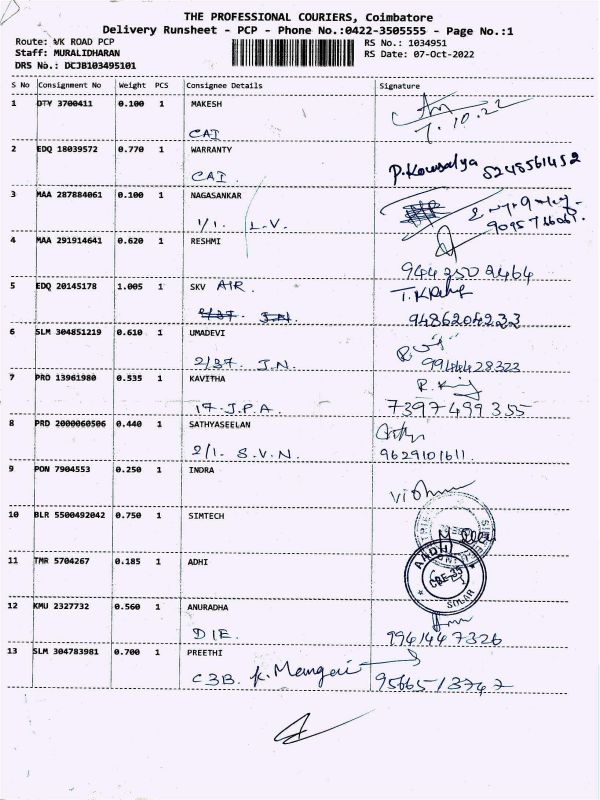 THE PROFESSIONAL COURIERS, Coimbatore
Delivery Runsheet - PCP - Phone No.:0422-3505555 - Page No.:1
Route: VK ROAD PCP RS No.: 1034951
Staff: MURALIDHARAN RS Date: 07-Oct-2022
DRS No.: DCJB103495101
S No Consignment No Weight PCS Consignee Details Signature
1 DTV 3700411 0.100 1 MAKESH
CAI 7.10.22
2 EDQ 18039572 0.770 1 WARRANTY
CAI. P.Kowsalya 5245561452
3 MAA 287884061 0.100 1 NAGASANKAR
1/1. L.V.
4 MAA 291914641 0.620 1 RESHMI
944 250 2464
5 EDQ 20145178 1.005 1 SKV AIR
2/37. J.N. 9486204233
6 SLM 304851219 0.610 1 UMADEVI
2/37 J.N. 9944428323
7 PRO 13961980 0.535 1 KAVITHA
17.J.P.A. 7397499355
8 PRD 2000060506 0.440 1 SATHYASEELAN
2/1. S.V.N. 9629101611.
9 PON 7904553 0.250 1 INDRA
10 BLR 5500492042 0.750 1 SIMTECH
11 TMR 5704267 0.185 1 ADHI
AADHI
CBE-35
SOLAR
12 KMU 2327732 0.560 1 ANURADHA
DIE. 9941447326
13 SLM 304783981 0.700 1 PREETHI
C3B. K. Mangai 9566513747